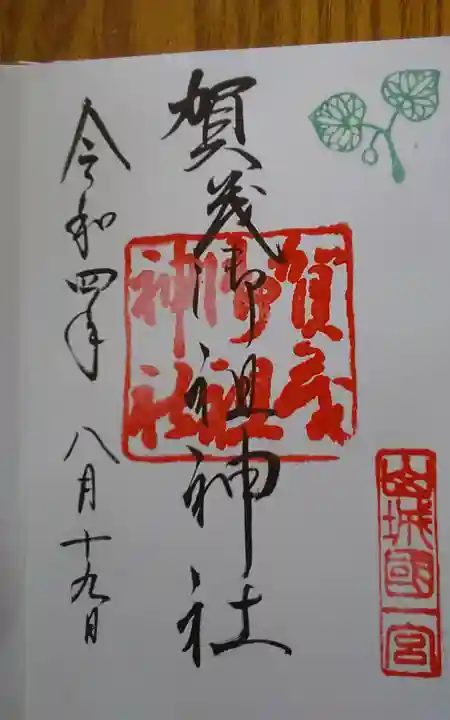 山城國一宮
賀茂御祖神社
賀茂御祖神社
令和四年 八月十九日